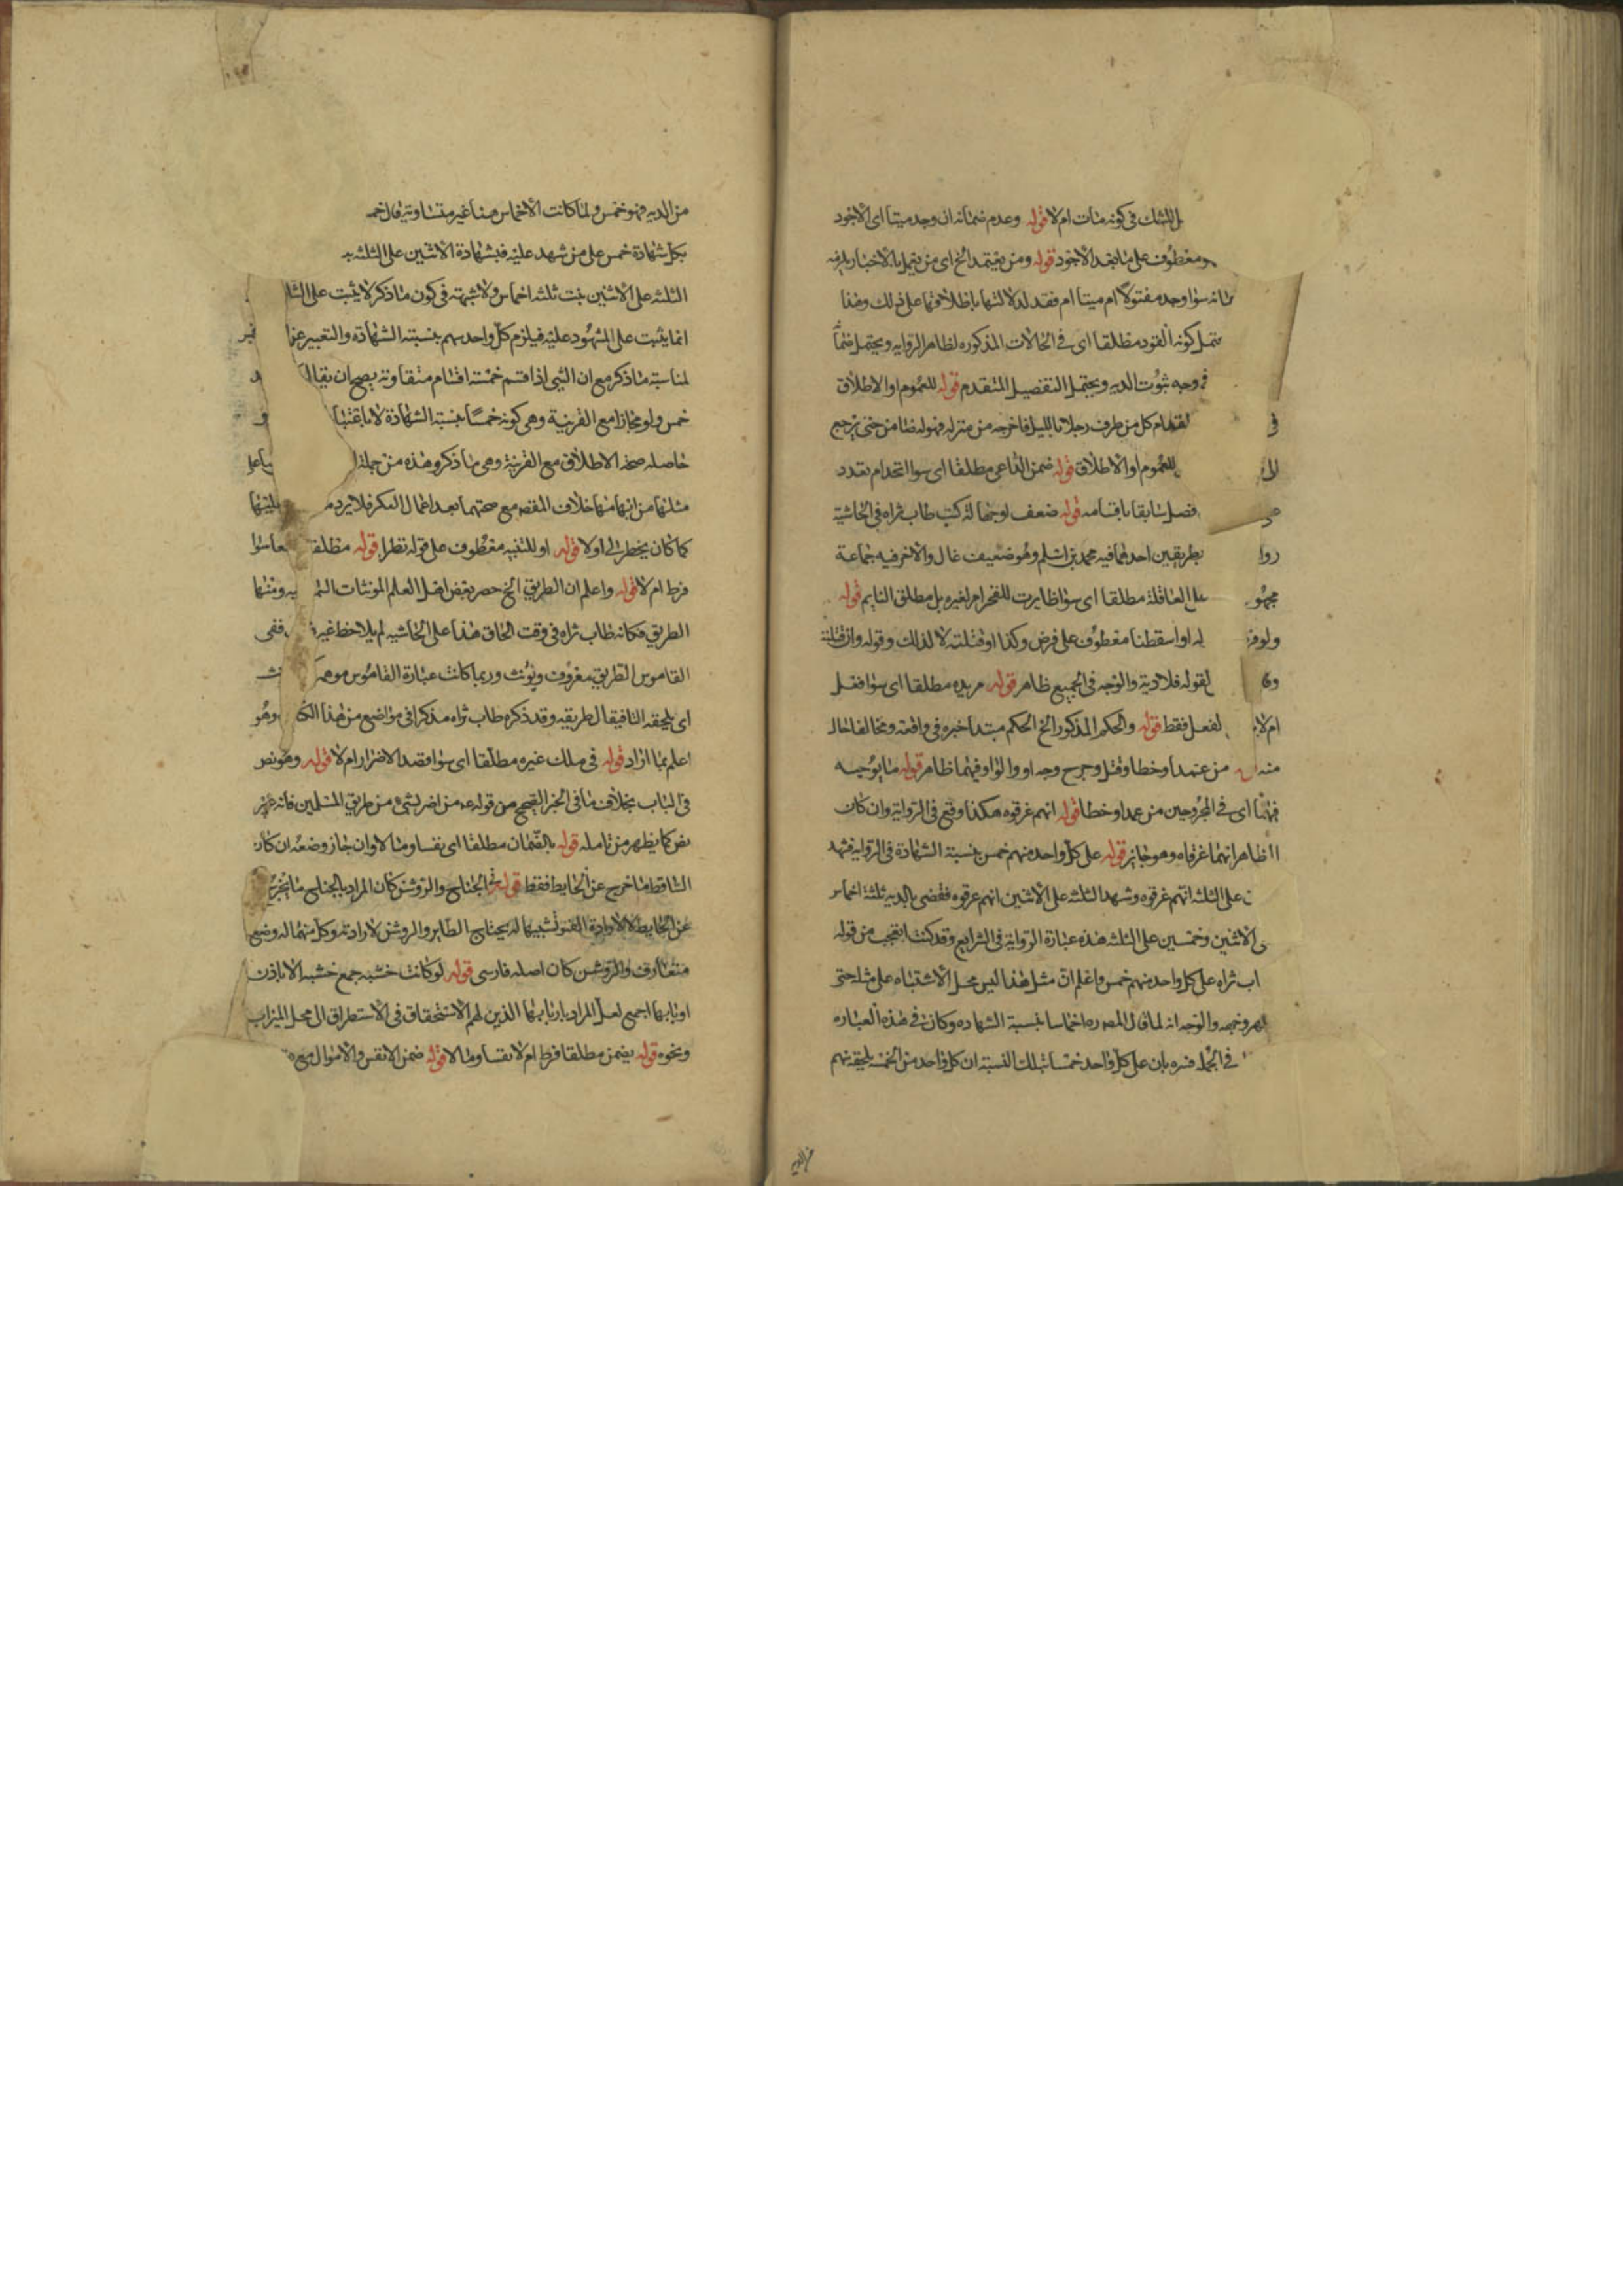 الشك في كونه مات ام لا قوله وعدم ضمانه ان وجد ميتا اى الاجود
معطوف على ما بعد الاجود قوله ومن يعتمد الخ اى من يعمل بالاخبار يلزمه
سوا وجد مقتولا ام ميتا ام فقد لدلالتها باطلاقها على ذلك وهذا
كونه القود مطلقا اى في الحالات المذكوره لظاهر الروايه ويحتمل
وجه ثبوت الديه ويحتمل التفصيل المتقدم قوله للعموم او الاطلاق
في كل من طرف رجلا بالليل فاخرجه من منزله فهو له ضامن حتى يرجع
للعموم او الاطلاق قوله ضمن الداعى مطلقا اى سوا اتحد ام تعدد
فصل سابقا باقسامه قوله ضعف لوجهالة كتب طاب ثراه في الحاشية
روا بطريقين احدهما فيه محمد بن اسلم وهو ضعيف غال والاخر فيه جماعة
العاقلة مطلقا اى سوا ظايرت للفخر ام لغيره بل مطلق النايم قوله
له او اسقطنا معطوف على فرض وكذا او قتلته لا لذلك وقوله وان قتلته
لقوله فلا دية والوجه في الجميع ظاهر قوله مريده مطلقا اى سوا فعل
ام لا لفعل فقط قوله والحكم المذكور الخ الحكم مبتدا خبره في واقعة ومخالفا حال
منه من عمدا وخطا وقتل وجرح وجه او والواو فيهما ظاهر قوله ما يوجبه
فيهما اى في المجروحين من عمد او خطا قوله انهم غرقوه هكذا وقع في الرواية وان كان
الظاهر انهما غرقاه وهو جايز قوله على كل واحد منهم خمس بنسبة الشهادة في الروايه فشهد
على الثلثه انهم غرقوه وشهد الثلثه على الاثنين انهم غرقوه فقضى بالديه ثلثة اخماس
الاثنين وخمسين على الثلثه هذه عبارة الرواية في الشرايع وقد كنت اتعجب من قوله
ثراه على كل واحد منهم خمس واعلم ان مثل هذا ليس محل الاشتباه على مثله حتى
والوجه انه لما قال المص ره اخماسا بنسبة الشهاده وكان في هذه العباره
في الجمله فسره بان على كل واحد خمسا بتلك النسبة ان كل واحد من الخمسة يلحقه سهم
من الديه
من الديه فهو خمس ولما كانت الاخماس منا غير متساوية قال
بكل شهادة خمس على من شهد عليه فبشهادة الاثنين على الثلثه
الثلثه على الاثنين بثت ثلثه اخماس ولا شبهة في كون ما ذكر لا يثبت على
انما يثبت على المشهود عليه فيلزم كل واحد سهم بنسبة الشهادة والتعبير
لمناسبة ما ذكر مع ان الشى اذا قسم خمسة اقسام متفاوته يصح ان يقال
خمس ولو مجازا مع القرينة وهى كونه خمسا بنسبة الشهادة لا باعتبار
حاصله صحة الاطلاق مع القرينة وهى ما ذكر وهذه من جملة
مثلها من ابهامها خلاف المقصد مع صحتهما بعد اعمال الفكر فلا يرد
كما كان يخطر لى اولا قوله او للتنبيه معطوف على قوله نظرا قوله مطلقا سوا
فرط ام لا قوله واعلم ان الطريق الخ حصر بعض اهل العلم المونثات ومنها
الطريق فكانه طاب ثراه في وقت الحاق هذا على الحاشيه لم يلاحظ غيره ففى
القاموس الطريق معروف ويؤنث وربما كانت عبارة القاموس
اى يلحقه التا فيقال طريقه وقد ذكره طاب ثراه مذكرا في مواضع من هذا وهو
اعلم بما اراد قوله في ملك غيره مطلقا اى سوا قصد الاضرار ام لا قوله وهو نص
في الباب بخلاف ما في الخبر الصحيح من قوله عم من اضر بشى من طريق المسلمين فانه غير
نص كما يظهر من تامله قوله بالضمان مطلقا اى نفسا ومالا وان جاز وضعه ان كان
الساقط ما خرج عن الحايط فقط قوله الجناح والروشن كان المراد بالجناح ما يخرج
عن الحايط لارادة الضو تشبيها له بجناح الطاير والروشن لارادته وكل منهما له وضع
متعارف والروشن كان اصله فارسى قوله لو كانت خشبه جمع خشبه الا باذن
اربابها اجمع لعل المراد باربابها الذين لهم الاستحقاق في الاستطراق الى محل الميزاب
ونحوه قوله يضمن مطلقا فرط ام لا نفسا ومالا قوله ضمن الانفس والاموال